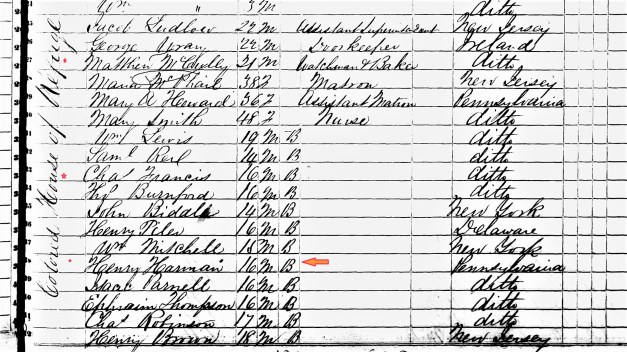 Wm " 3 M ditto
Jacob Ludlow 22 M Assistant Superintendent New Jersey
George Wray 22 M Doorkeeper Ireland
Matthew McCurdey 21 M Watchman & Baker ditto
38 F Matron New Jersey
Mary A Howard 36 F Assistant Matron Pennsylvania
Mary Smith 48 F Nurse ditto
Wm Lewis 19 M B ditto
Saml 14 M B ditto
Chas Francis 16 M B ditto
Burnford 16 M B ditto
John Biddle 14 M B New York
Henry Peter 16 M B Delaware
Wm Mitchell 18 M B New York
Henry Harman 16 M B Pennsylvania
Isaac Parnell 16 M B ditto
Ephraim Thompson 16 M B ditto
Chas Robinson 17 M B ditto
Henry Brown 18 M B New Jersey
Colored House of Refuge